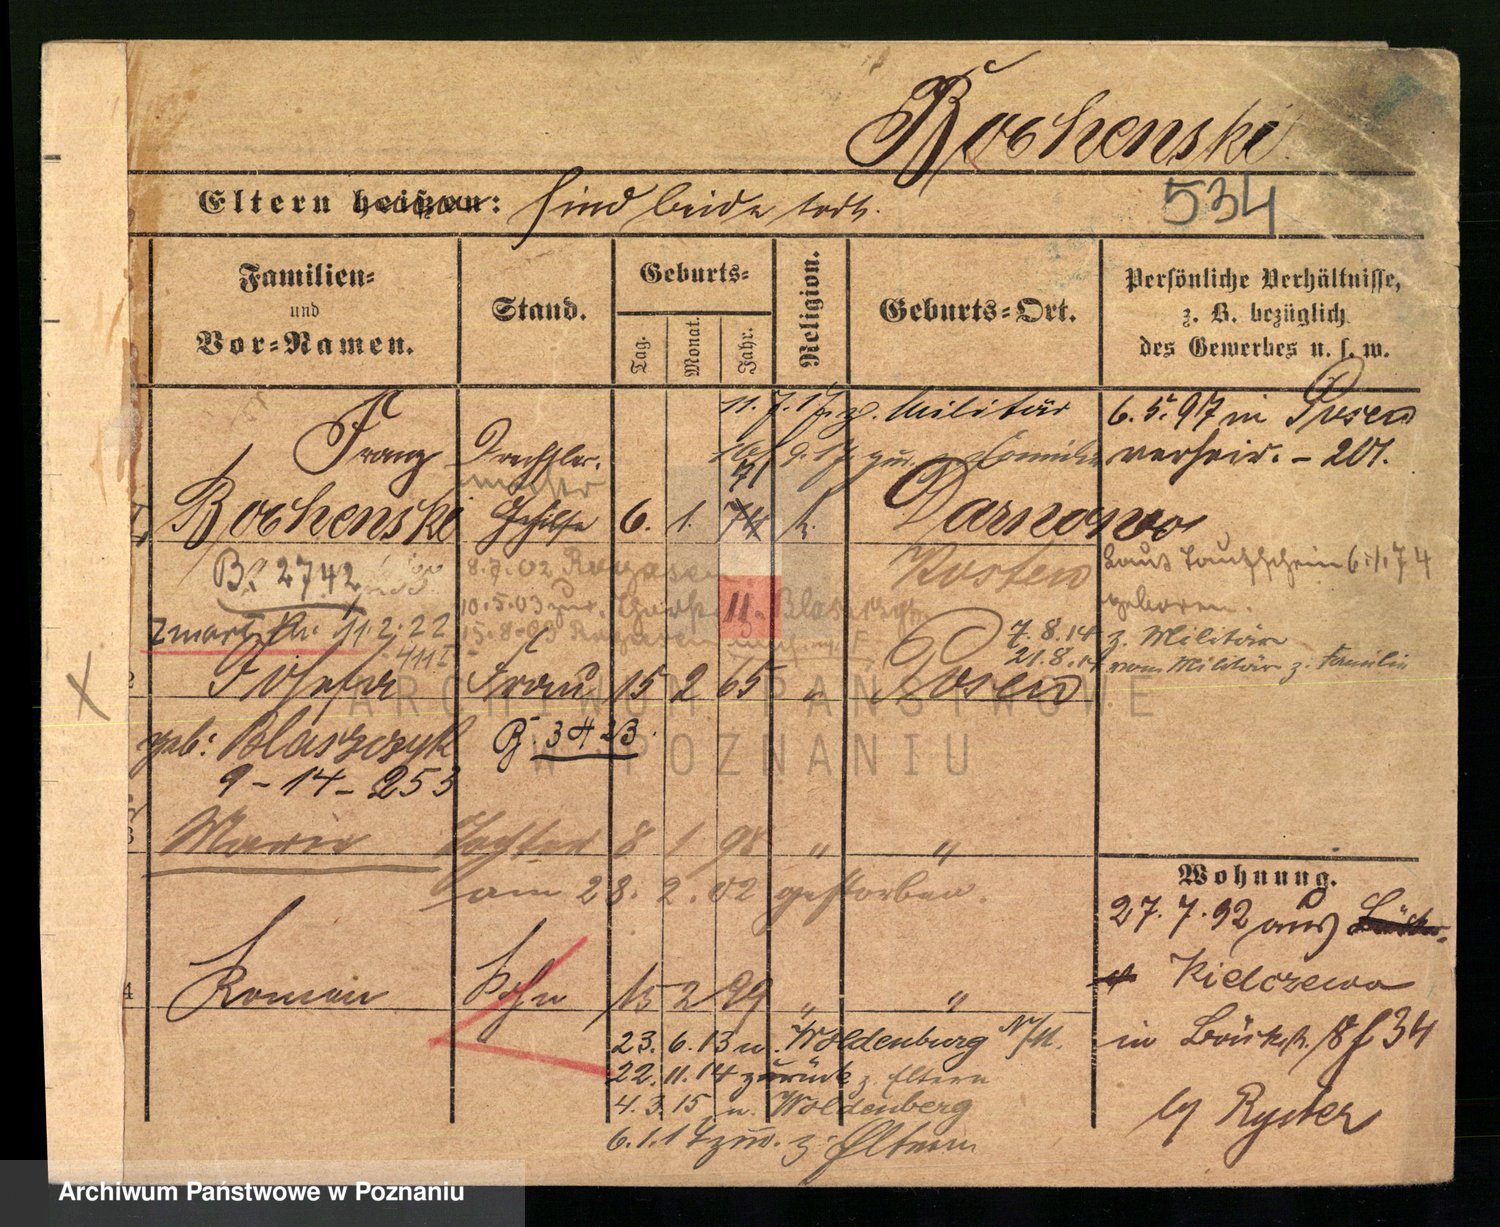 Rochenski
Eltern heißen: sind beide todt.
534
Familien- und Vor-Namen.
Stand.
Geburts-
Tag. Monat. Jahr.
Religion.
Geburts-Ort.
Persönliche Verhältnisse, z. B. bezüglich des Gewerbes u. s. w.
11.7.17 z. Militär
6.5.97 in Posen
verheir. - 207.
Franz Drechsler-
71
Rochenski Gehilfe 6. 1. 74 k. Darnowo
Kosten
Laut Taufschein 6.1.74
geboren.
B. 2742
8.7.02
10.5.03 zur. 11. Blaszczyk
zmarł 11.2.22
15.8.03
7.8.14 z. Militär
21.8.14 vom Militär z. Familie
2 Josefa Frau 15 2 65 " Posen
geb: Blaszczyk B. 3423.
9-14-253
3 Marie Tochter 8 1 98 " "
am 28.2.02 gestorben.
Wohnung.
27.7.92 aus
Kielczewo
in 8 f 34
by Ryster
4 Roman Sohn 15 2 99 " "
23.6.13 n. Woldenburg N/M.
22.11.14 zurück z. Eltern
4.3.15 n. Woldenberg
6.1.17 zur. z. Eltern
ARCHIWUM PAŃSTWOWE
W POZNANIU
Archiwum Państwowe w Poznaniu